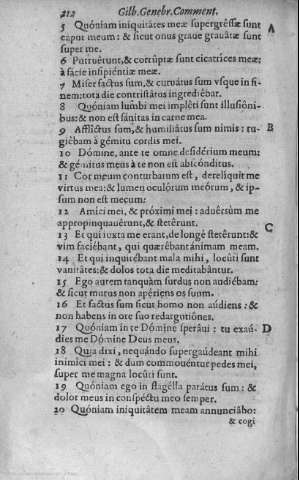 212 Gilb. Genebr. Comment.
5 Quóniam iniquitátes meæ supergréssæ sunt A
caput meum: & sicut onus graue grauátæ sunt
super me.
6 Putruérunt, & corrúptæ sunt cicatríces meæ:
à fácie insipiéntiæ meæ.
7 Miser factus sum, & curuátus sum vsque in fi-
nem: tota die contristátus ingrediébar.
8 Quóniam lumbi mei impléti sunt illusióni-
bus: & non est sánitas in carne mea.
9 Afflíctus sum, & humiliátus sum nimis: ru- B
giébam à gémitu cordis mei.
10 Dómine, ante te omne desidérium meum:
& gémitus meus à te non est abscónditus.
11 Cor meum conturbatum est, derelíquit me
virtus mea: & lumen oculórum meórum, & ip-
sum non est mecum:
12 Amíci mei, & próximi mei: aduérsùm me
appropinquauérunt, & stetérunt.
13 Et qui iuxta me erant, de longè stetérunt: & C
vim faciébant, qui quærébant ánimam meam.
14 Et qui inquirébant mala mihi, locúti sunt
vanitátes: & dolos tota die meditabántur.
15 Ego autem tanquàm surdus non audiébam:
& sicut mutus non apériens os suum.
16 Et factus sum sicut homo non áudiens: &
non habens in ore suo redargutiónes.
17 Quóniam in te Dómine speráui: tu exáu- D
dies me Dómine Deus meus.
18 Quia dixi, nequándo supergáudeant mihi
inimíci mei: & dum commouéntur pedes mei,
super me magna locúti sunt.
19 Quóniam ego in flagélla parátus sum: &
dolor meus in conspéctu meo semper.
20 Quóniam iniquitátem meam annunciábo:
& cogi